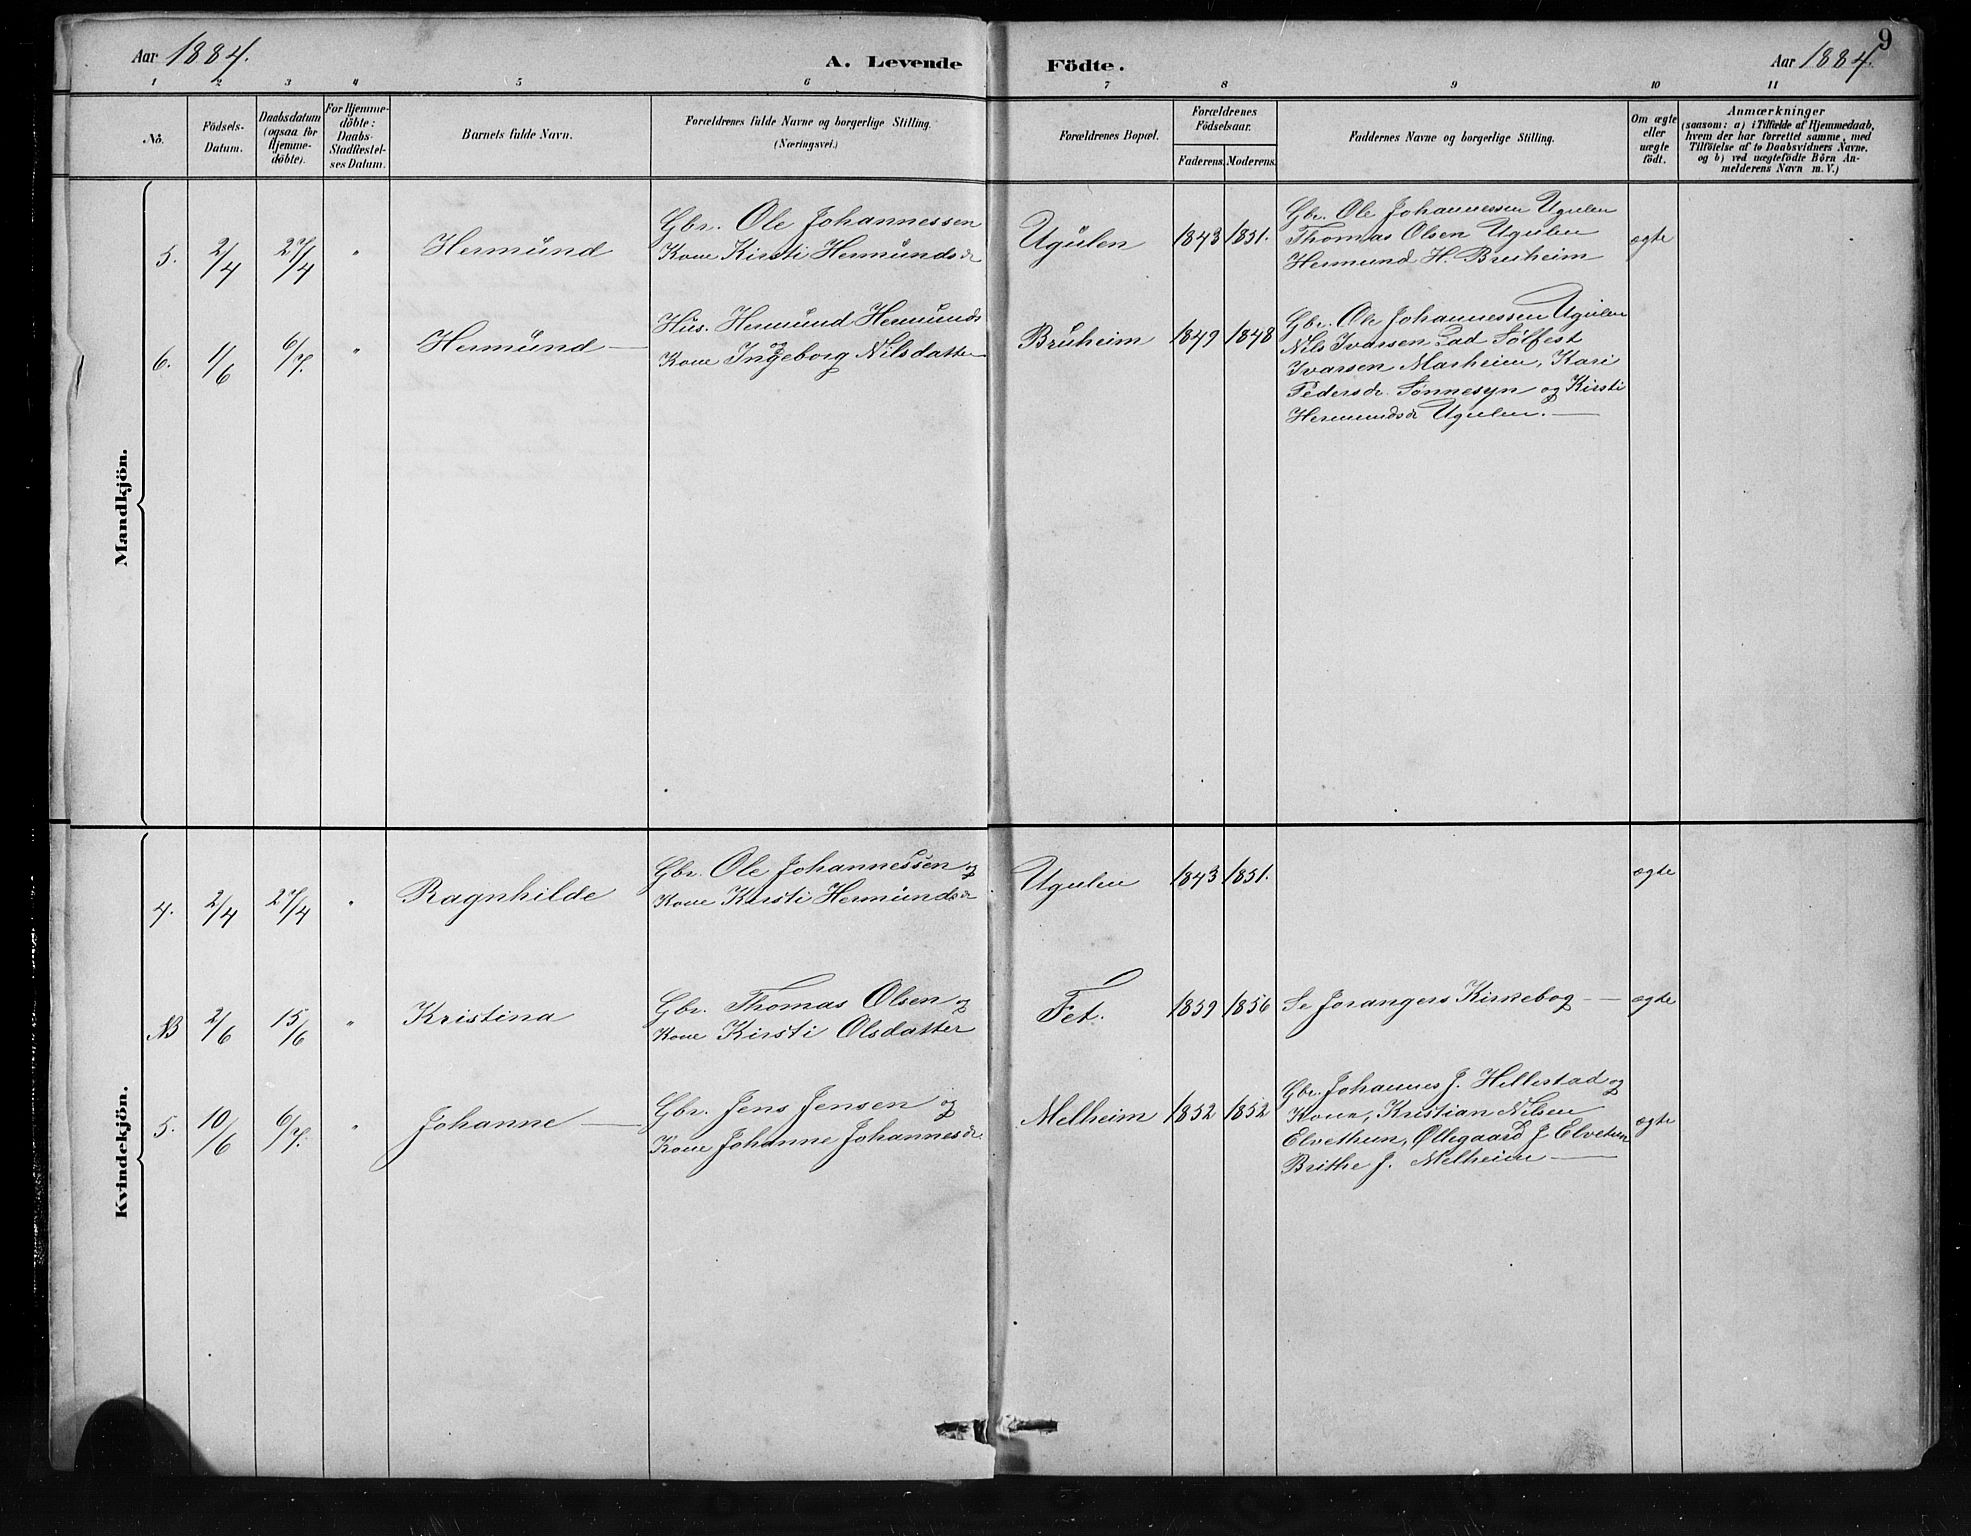 Aar 1884.
A. Levende Födte.
Aar 1884.
9
1 2 3 4 5 6 7 8 9 10 11
No.
Födsels-Datum.
Daabsdatum (ogsaa for Hjemme-döbte).
For Hjemme-döbte: Daabs-Stadfæstel-ses Datum.
Barnets fulde Navn.
Forældrenes fulde Navne og borgerlige Stilling.
(Næringsvei.)
Forældrenes Bopæl.
Forældrenes Födselsaar.
Faderens. Moderens.
Faddernes Navne og borgerlige Stilling.
Om ægte eller uægte födt.
Anmærkninger
(saasom: a) i Tilfælde af Hjemmedaab,
hvem der har forrettet samme, med
Tilföielse af to Daabsvidners Navne.
og b) ved uægtefödte Börn An-
melderens Navn m. V.)
Mandkjön.
5. 2/4 27/4 " Hermund
Gbr. Ole Johannessen
Kone Kirsti Hermundsdr
Ugulen 1843 1851.
Gbr. Ole Johannessen Ugulen
Thomas Olsen Ugulen
Hermund H. Bruheim
ægte
6. 1/6 6/7. Hermund
Hus. Hermund Hermunds
og
Kone Ingeborg Nilsdatter
Bruheim 1849 1848
Gbr. Ole Johannessen Ugulen
Nils Ivarsen Sølfest
Ivarsen Marheim, Kari
Pedersdr. Sønnesyn og Kirsti
Hermundsdr Ugulen.
Kvindekjön.
4. 2/4 27/4 " Ragnhilde
Gbr. Ole Johannessen og
Kone Kirsti Hermundsdr
Ugulen 1843 1851.
ægte
NB 2/6 15/6 " Kristina
Gbr. Thomas Olsen og
Kone Kirsti Olsdatter
Fet. 1859 1856
Se Jorangers Kirkebog
ægte
5. 10/6 6/7. " Johanne
Gbr. Jens Jensen og
Kone Johanne Johannesdr.
Melheim 1852 1852
Gbr. Johannes J. Hellestad og
Kone, Kristian Nilsen
Elvethun, Øllegaard J Elvetun
Brithe J. Melheim
ægte